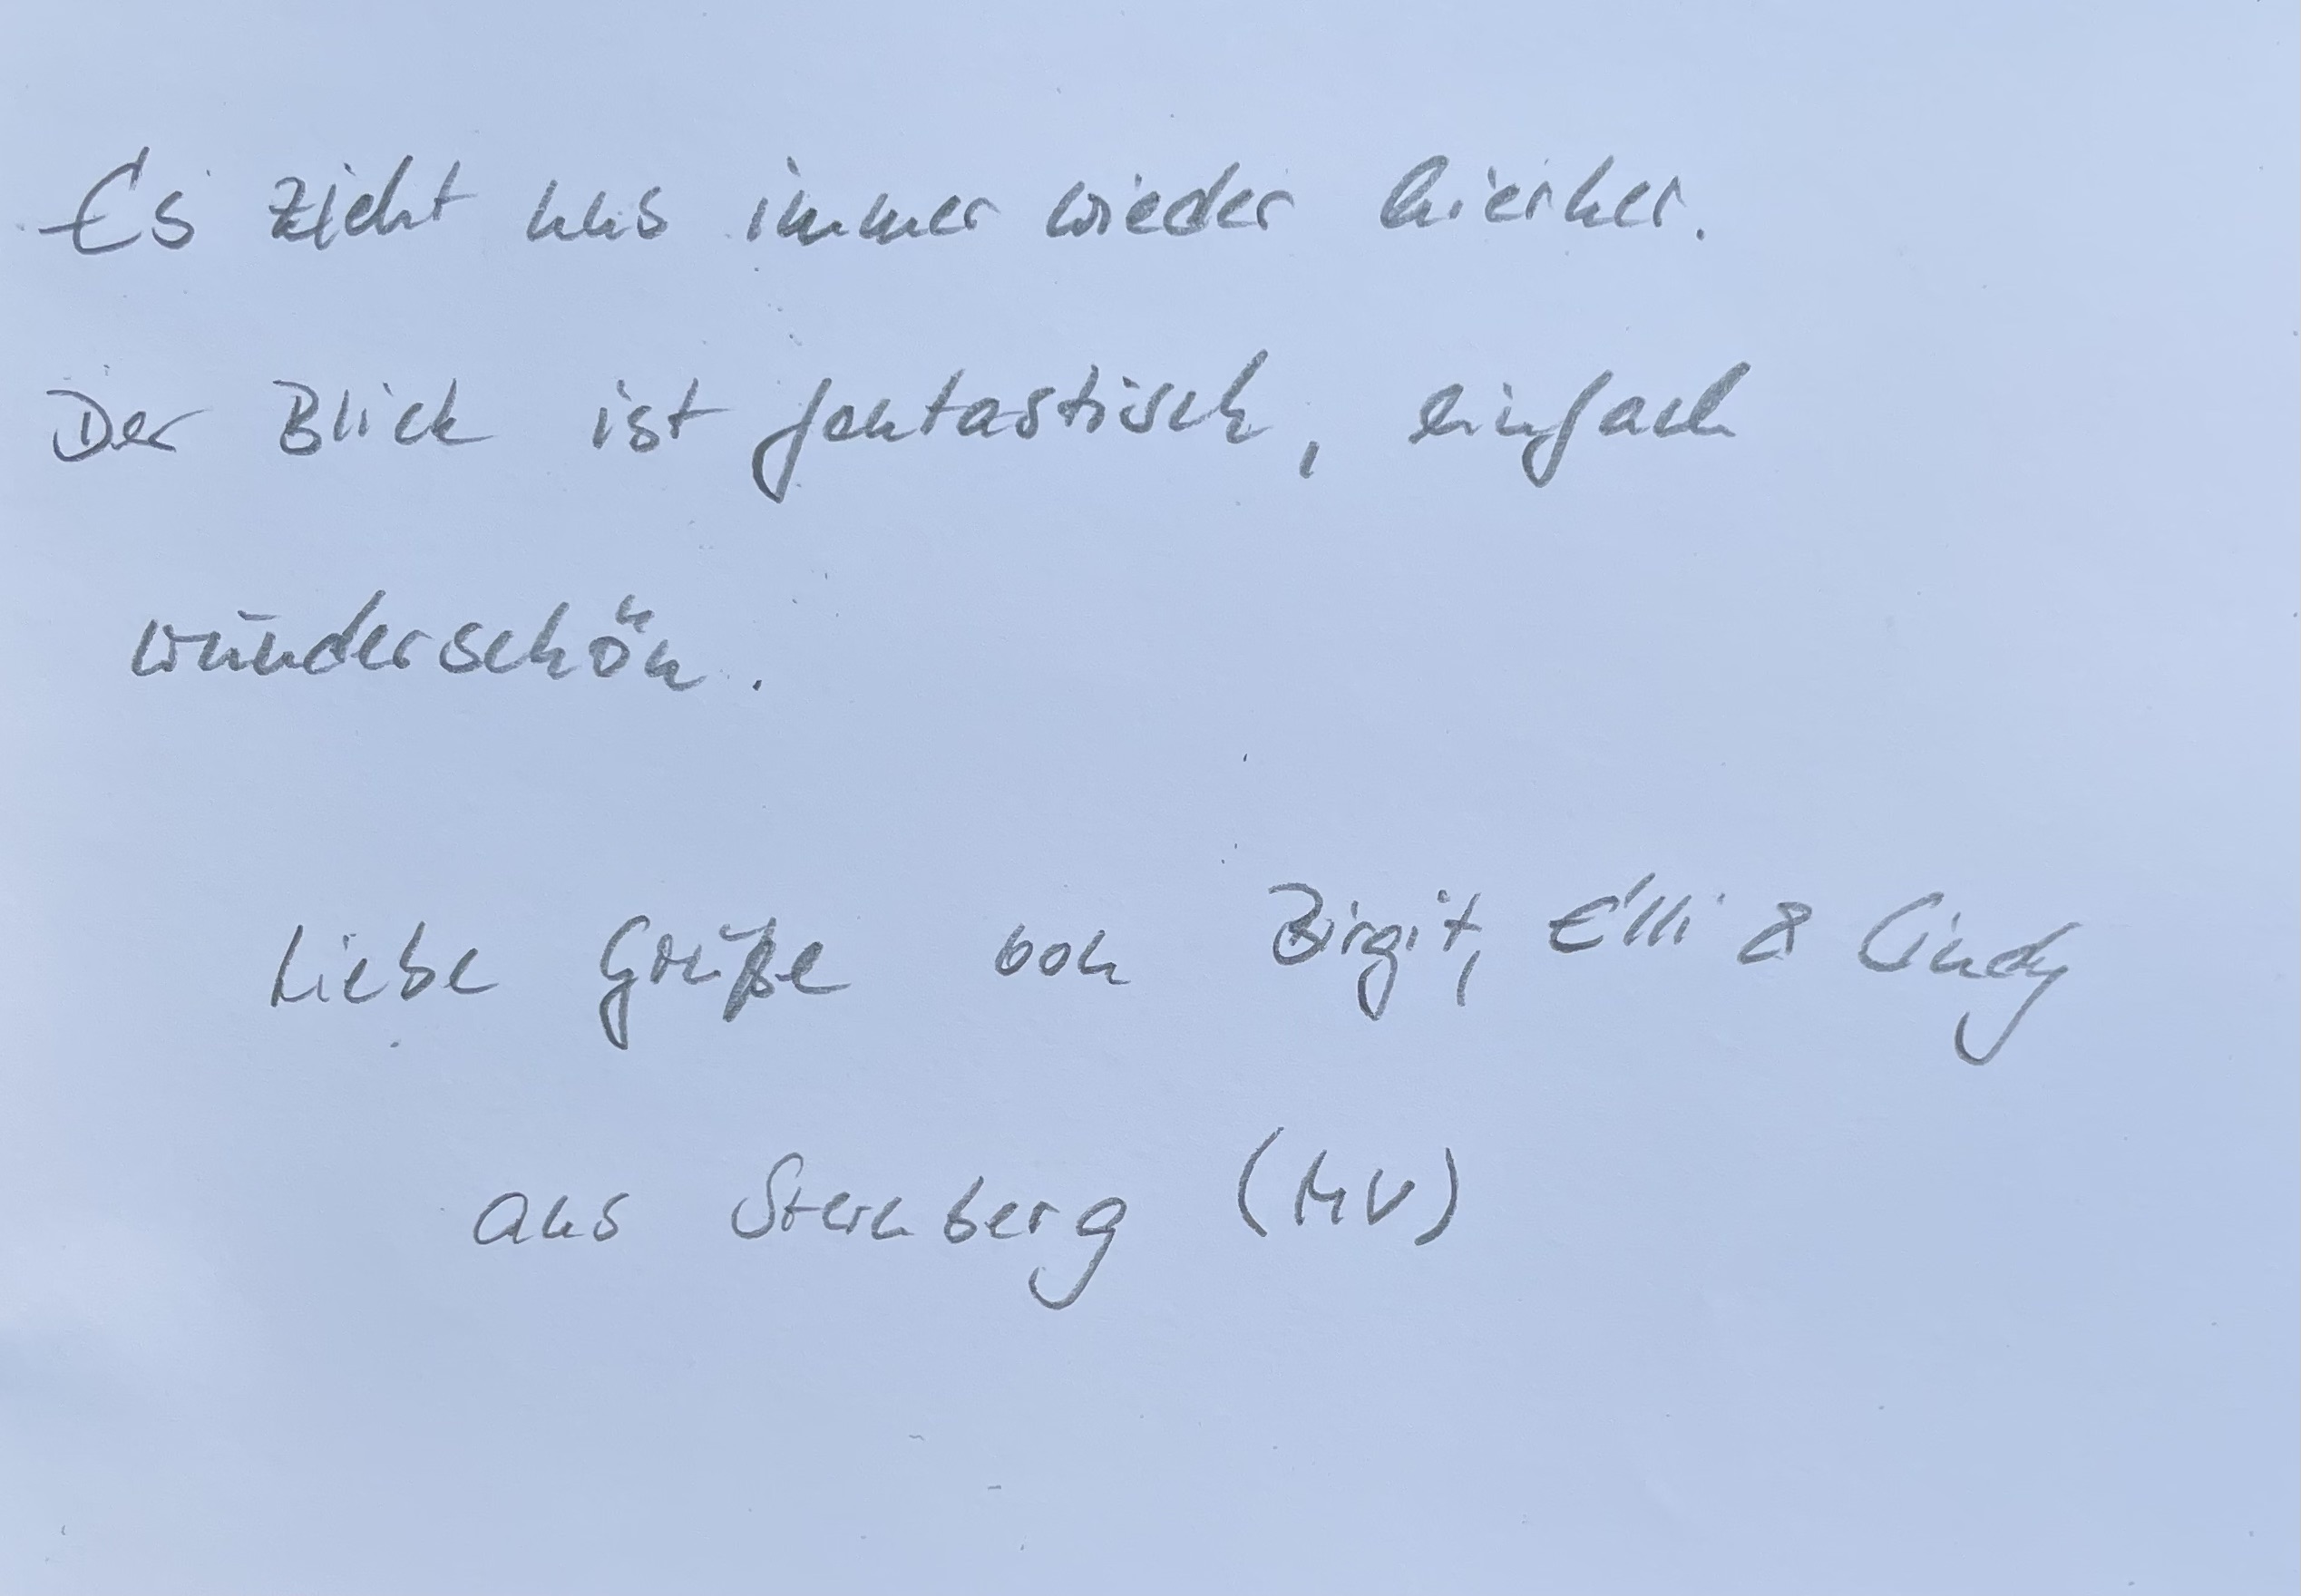 Es zieht uns immer wieder hierher.
Der Blick ist fantastisch, einfach
wunderschön.
Liebe Grüße von Birgit, Elli & Cindy
aus Sternberg (MV)